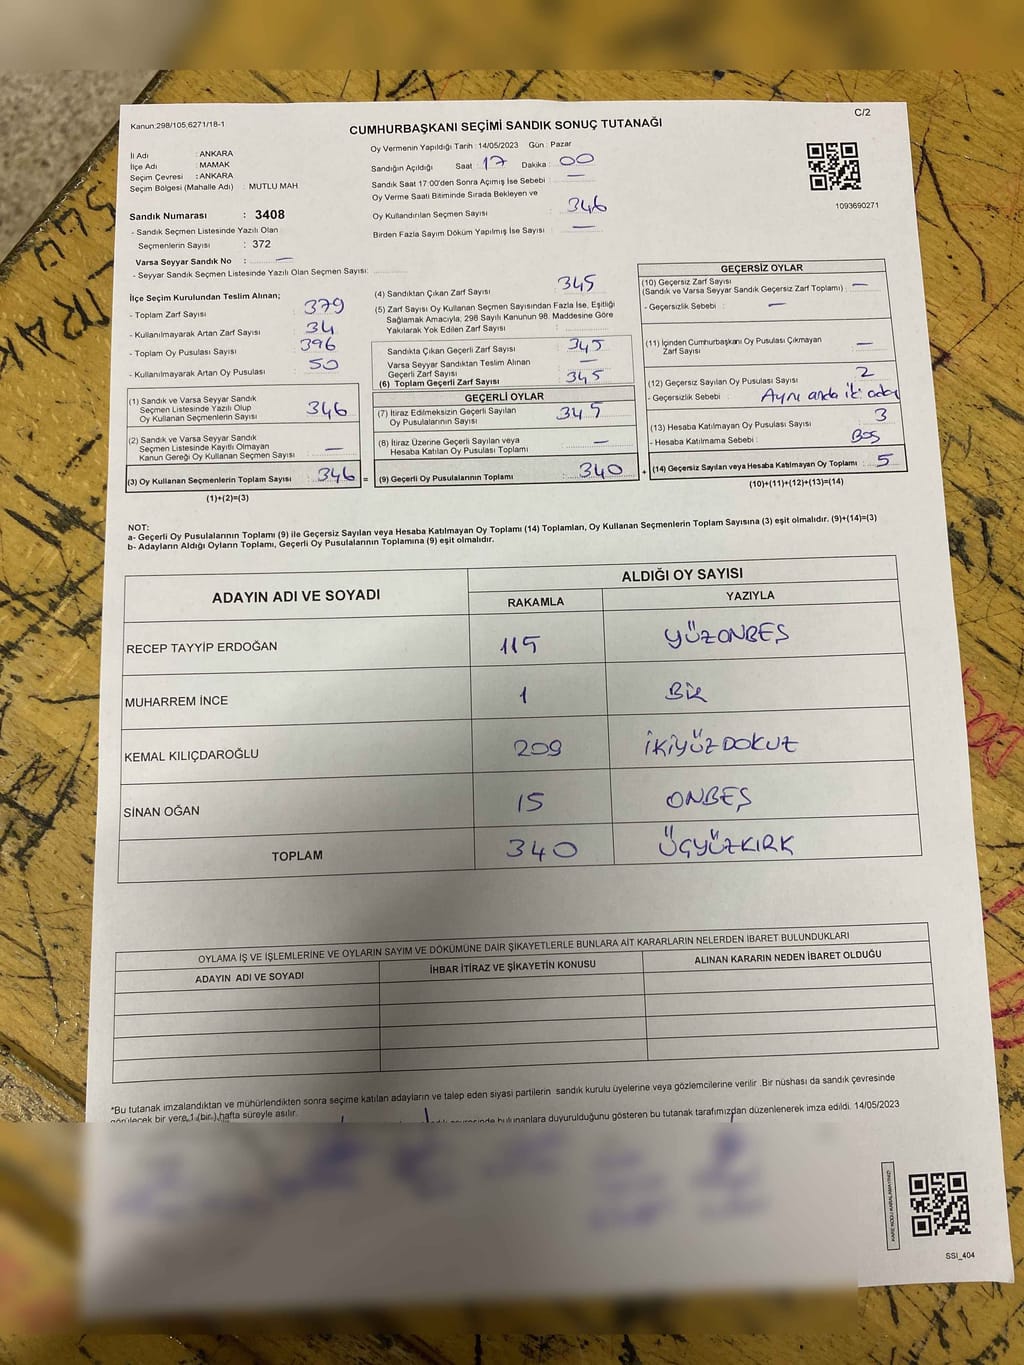 Kanun:298/105;6271/18-1
C/2
CUMHURBAŞKANI SEÇİMİ SANDIK SONUÇ TUTANAĞI
İl Adı : ANKARA
İlçe Adı : MAMAK
Seçim Çevresi : ANKARA
Seçim Bölgesi (Mahalle Adı) : MUTLU MAH
Sandık Numarası : 3408
- Sandık Seçmen Listesinde Yazılı Olan
Seçmenlerin Sayısı : 372
Varsa Seyyar Sandık No : —
- Seyyar Sandık Seçmen Listesinde Yazılı Olan Seçmen Sayısı:
Oy Vermenin Yapıldığı Tarih : 14/05/2023 Gün : Pazar
Sandığın Açıldığı Saat : 17 Dakika : 00
Sandık Saat 17:00'den Sonra Açılmış İse Sebebi : —
Oy Verme Saati Bitiminde Sırada Bekleyen ve
Oy Kullandırılan Seçmen Sayısı : 346
Birden Fazla Sayım Döküm Yapılmış İse Sayısı : —
1093690271
İlçe Seçim Kurulundan Teslim Alınan;
- Toplam Zarf Sayısı : 379
- Kullanılmayarak Artan Zarf Sayısı : 34
- Toplam Oy Pusulası Sayısı : 396
- Kullanılmayarak Artan Oy Pusulası : 50
(1) Sandık ve Varsa Seyyar Sandık
Seçmen Listesinde Yazılı Olup
Oy Kullanan Seçmenlerin Sayısı : 346
(2) Sandık ve Varsa Seyyar Sandık
Seçmen Listesinde Kayıtlı Olmayan
Kanun Gereği Oy Kullanan Seçmen Sayısı : —
(3) Oy Kullanan Seçmenlerin Toplam Sayısı : 346 =
(1)+(2)=(3)
(4) Sandıktan Çıkan Zarf Sayısı : 345
(5) Zarf Sayısı Oy Kullanan Seçmen Sayısından Fazla İse, Eşitliği
Sağlamak Amacıyla, 298 Sayılı Kanunun 98. Maddesine Göre
Yakılarak Yok Edilen Zarf Sayısı :
Sandıkta Çıkan Geçerli Zarf Sayısı : 345
Varsa Seyyar Sandıktan Teslim Alınan
Geçerli Zarf Sayısı : —
(6) Toplam Geçerli Zarf Sayısı : 345
GEÇERLİ OYLAR
(7) İtiraz Edilmeksizin Geçerli Sayılan
Oy Pusulalarının Sayısı : 345
(8) İtiraz Üzerine Geçerli Sayılan veya
Hesaba Katılan Oy Pusulası Toplamı : —
(9) Geçerli Oy Pusulalarının Toplamı : 340 +
GEÇERSİZ OYLAR
(10) Geçersiz Zarf Sayısı : —
(Sandık ve Varsa Seyyar Sandık Geçersiz Zarf Toplamı)
- Geçersizlik Sebebi : —
(11) İçinden Cumhurbaşkanı Oy Pusulası Çıkmayan
Zarf Sayısı : —
(12) Geçersiz Sayılan Oy Pusulası Sayısı : 2
- Geçersizlik Sebebi : Aynı anda iki aday
(13) Hesaba Katılmayan Oy Pusulası Sayısı : 3
- Hesaba Katılmama Sebebi : Boş
(14) Geçersiz Sayılan veya Hesaba Katılmayan Oy Toplamı : 5
(10)+(11)+(12)+(13)=(14)
NOT:
a- Geçerli Oy Pusulalarının Toplamı (9) ile Geçersiz Sayılan veya Hesaba Katılmayan Oy Toplamı (14) Toplamları, Oy Kullanan Seçmenlerin Toplam Sayısına (3) eşit olmalıdır. (9)+(14)=(3)
b- Adayların Aldığı Oyların Toplamı, Geçerli Oy Pusulalarının Toplamına (9) eşit olmalıdır.
ADAYIN ADI VE SOYADI
ALDIĞI OY SAYISI
RAKAMLA YAZIYLA
RECEP TAYYİP ERDOĞAN 115 YÜZONBEŞ
MUHARREM İNCE 1 BİR
KEMAL KILIÇDAROĞLU 209 İKİYÜZDOKUZ
SİNAN OĞAN 15 ONBEŞ
TOPLAM 340 ÜÇYÜZKIRK
OYLAMA İŞ VE İŞLEMLERİNE VE OYLARIN SAYIM VE DÖKÜMÜNE DAİR ŞİKAYETLERLE BUNLARA AİT KARARLARIN NELERDEN İBARET BULUNDUKLARI
ADAYIN ADI VE SOYADI İHBAR İTİRAZ VE ŞİKAYETİN KONUSU ALINAN KARARIN NEDEN İBARET OLDUĞU
*Bu tutanak imzalandıktan ve mühürlendikten sonra seçime katılan adayların ve talep eden siyasi partilerin sandık kurulu üyelerine veya gözlemcilerine verilir .Bir nüshası da sandık çevresinde
görülecek bir yere 1 (bir) hafta süreyle asılır.
bulunanlara duyurulduğunu gösteren bu tutanak tarafımızdan düzenlenerek imza edildi. 14/05/2023
SSI_404